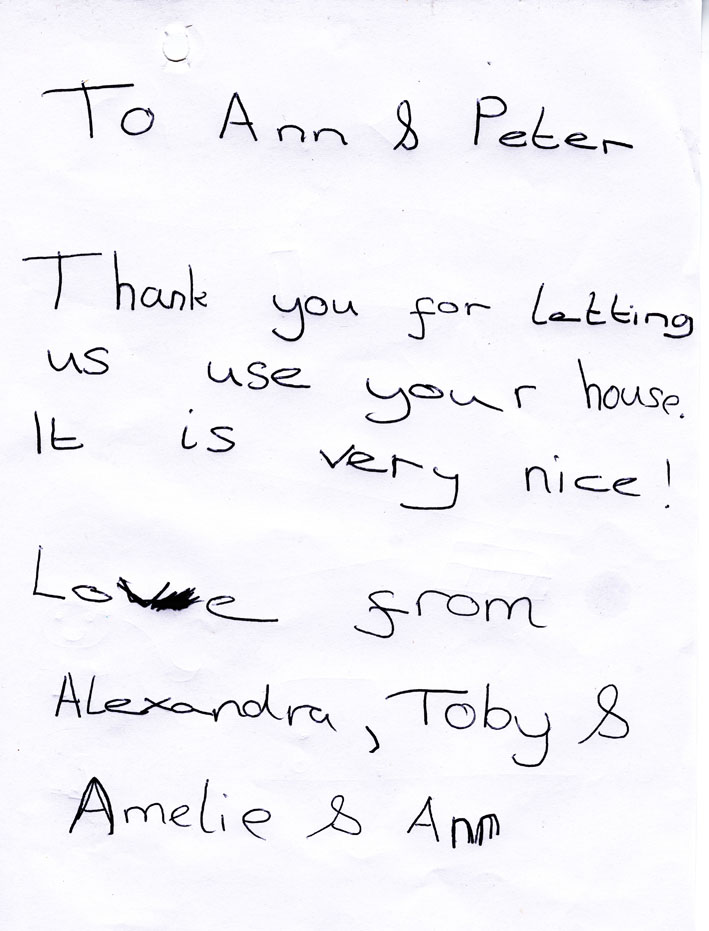 To Ann & Peter
Thank you for letting
us use your house.
It is very nice!
Love from
Alexandra, Toby &
Amelie & Ann